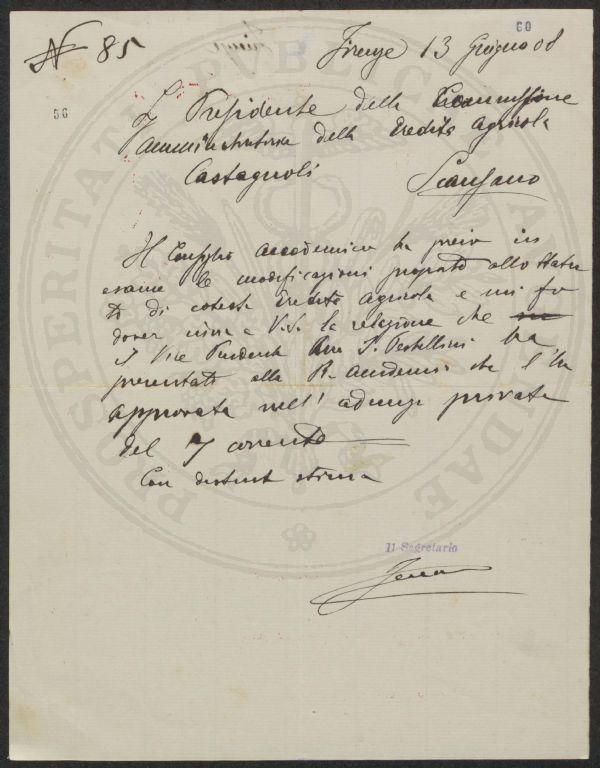 60
N 85
Firenze 13 Giugno 08
56
Il Presidente della Commissione
Amministratrice della Eredità Agricola
Castagnoli Scansano
Il Consiglio Accademico ha preso in
esame le modificazioni proposte allo Statu
to di cotesta Eredità Agricola e mi fo
dover a V.S. la relazione che
il Vice Presidente I. Pestellini ha
presentata alla R. Accademia che l'ha
approvata nell' adunza privata
del 7 corrente
Con distinta stima
Il Segretario
PROSPERITATI PVBLICAE AVGENDAE